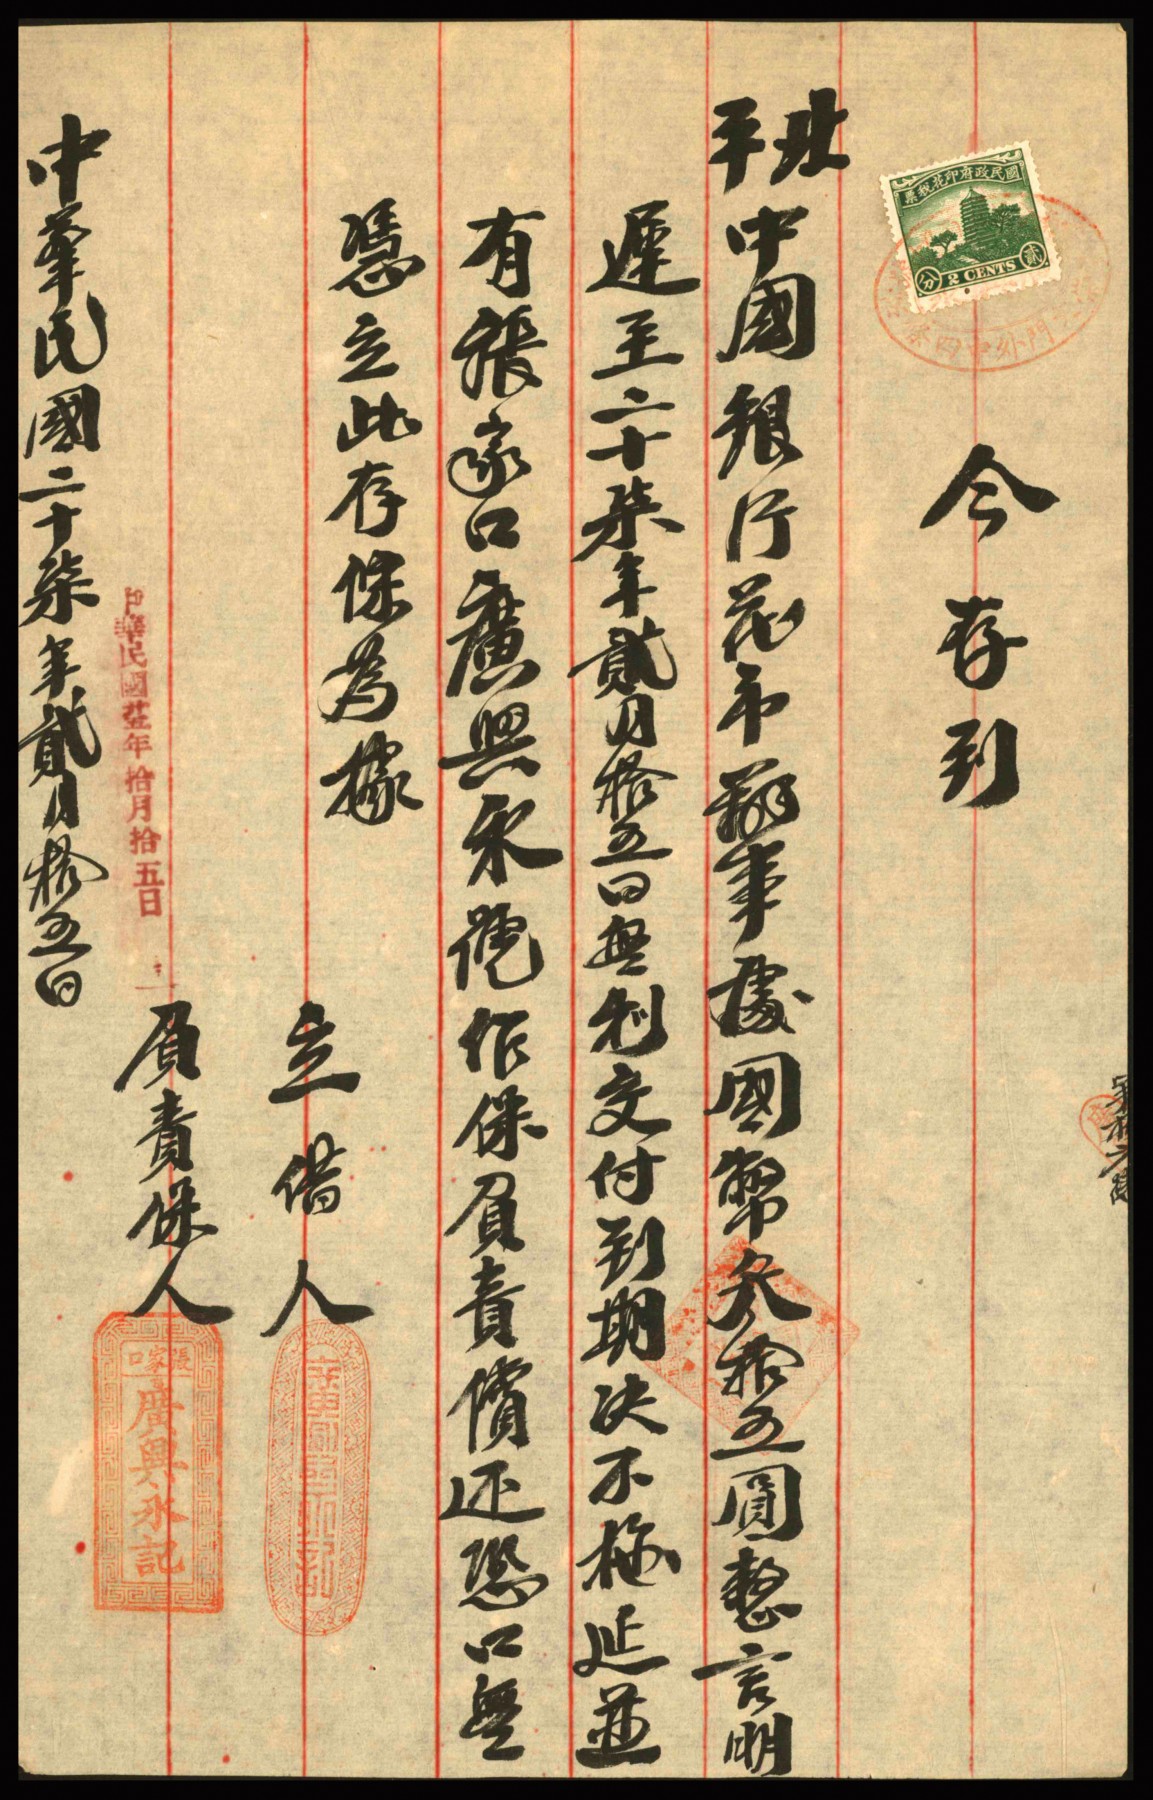 國民政府印花稅票
貳分
2 CENTS
門外
四條
今存到
北平
中國銀行花市辦事處國幣叁拾五圓整言明
遲至二十柒年貳月拾五日無利交付到期决不拖延並
有張家口廣興永號作保負責償还恐口無
憑立此存保為據
立借人
負責保人
張家口
廣興永記
中華民國
年拾月拾五日
中華民國二十柒年貳月拾五日